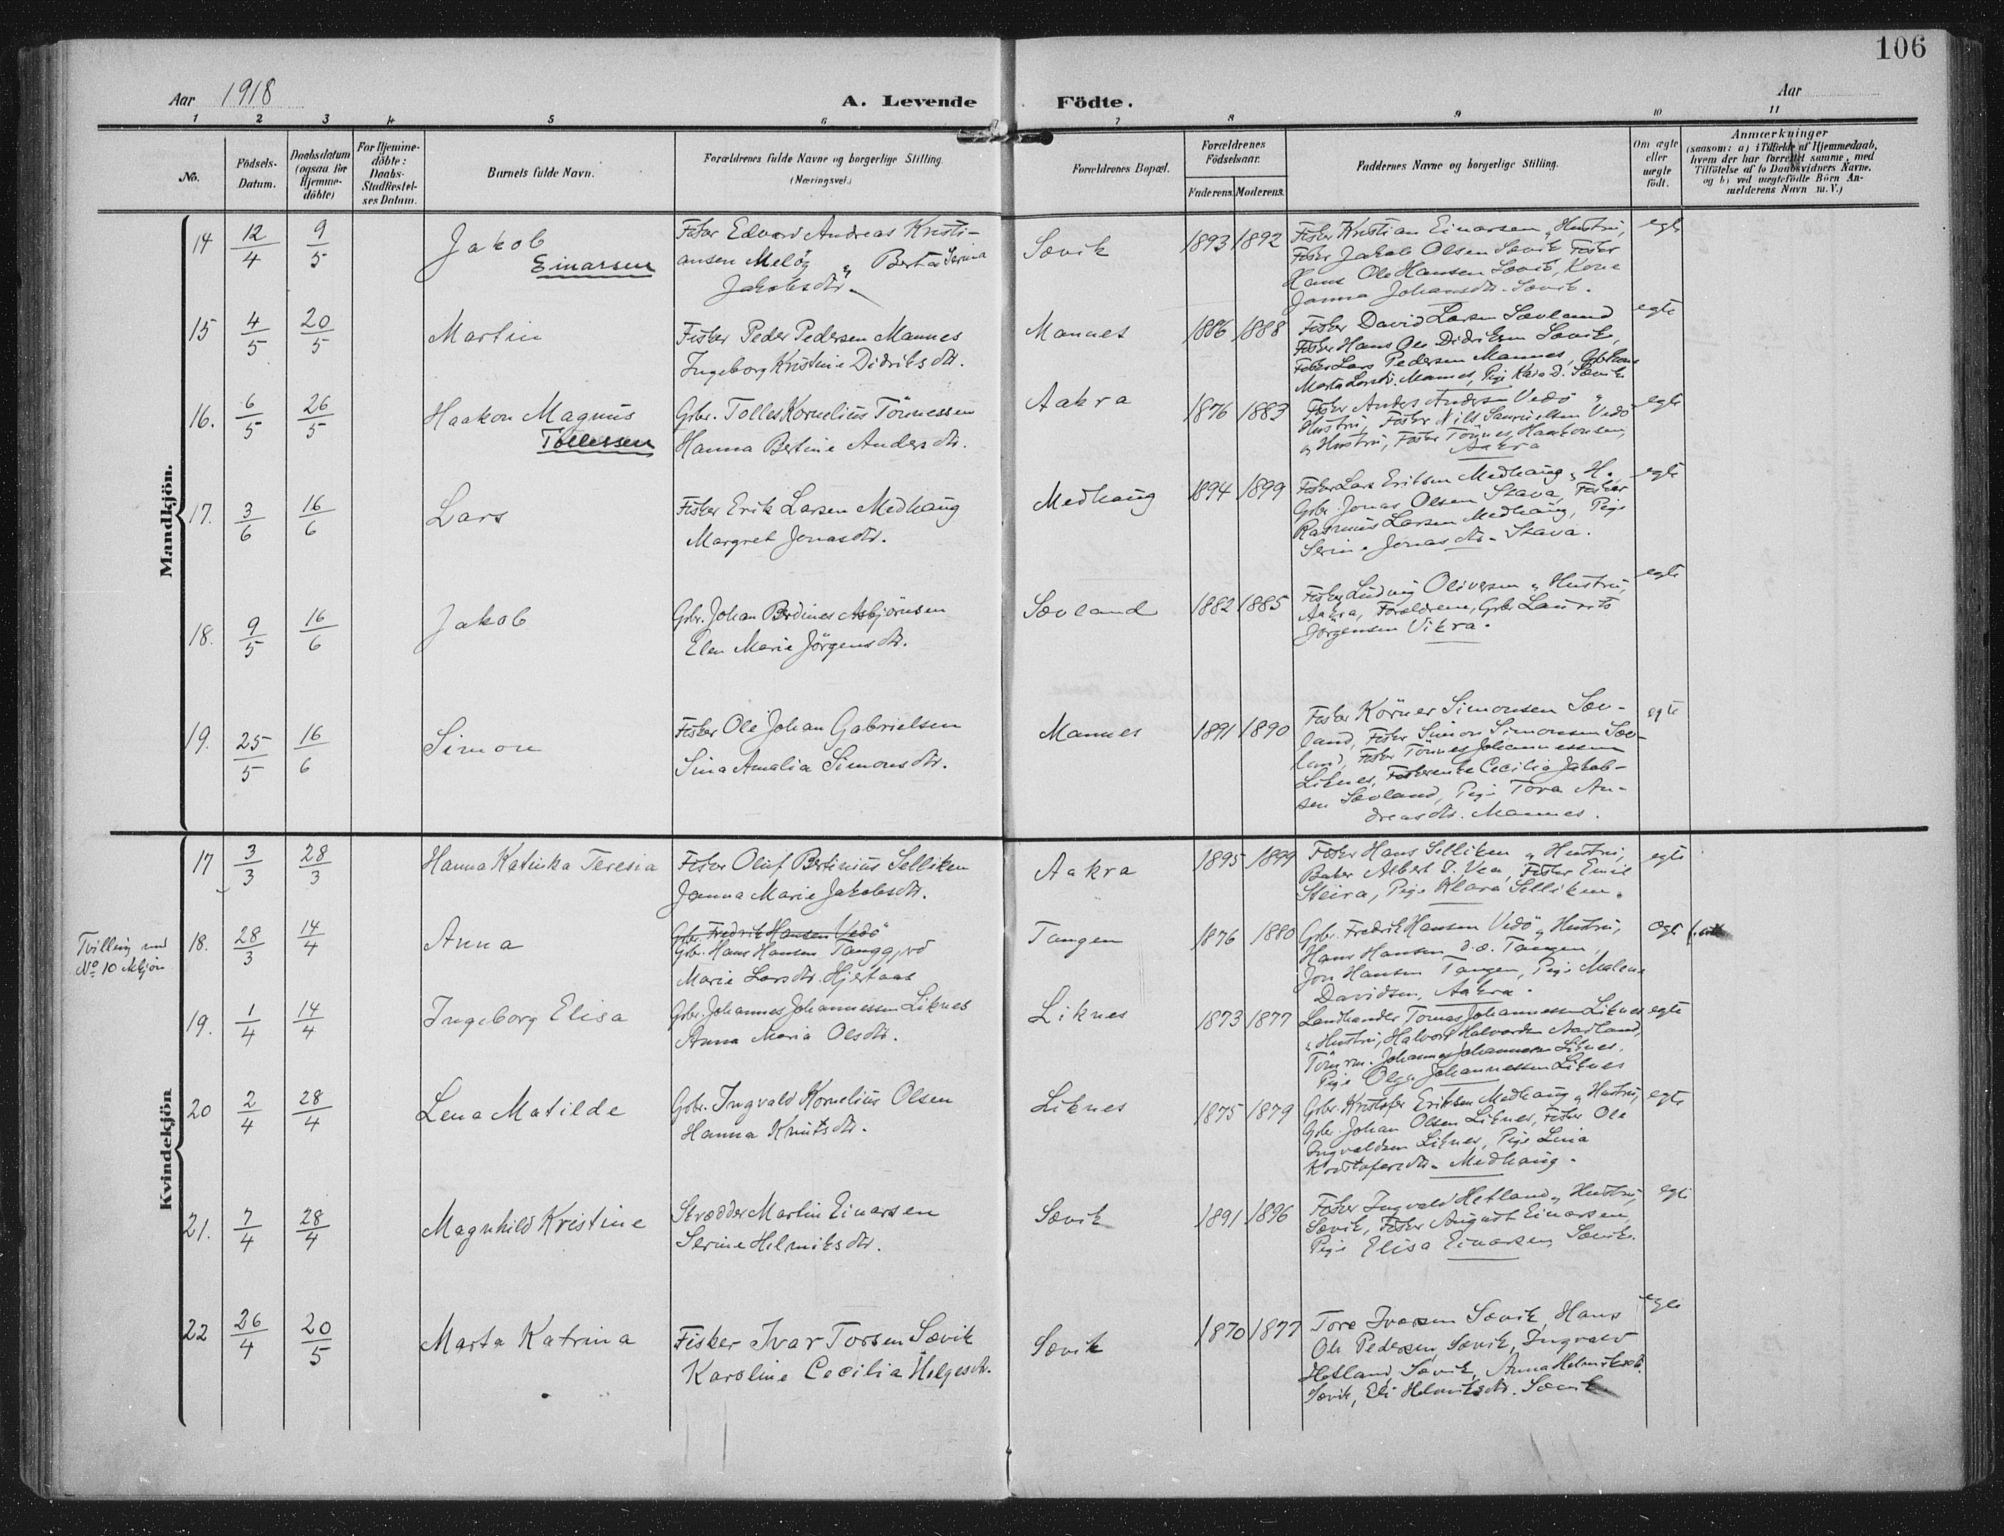 106
Aar 1918
A. Levende
Födte.
Aar
1 2 3 4 5 6 7 8 9 10 11
No.
Födsels-
Datum.
Daabsdatum
(ogsaa for
Hjemme-
döbte)
For Hjemme-
döbte:
Daabs-
Stadfæstel-
ses Datum.
Barnets fulde Navn.
Forældrenes fulde Navne og borgerlige Stilling.
(Næringsvei.)
Forældrenes Bopæl.
Forældrenes
Födselsaar.
Faderens. Moderens.
Faddernes Navne og borgerlige Stilling.
Om ægte
eller
uægte
födt.
Anmærkninger
(saasom: a) i Tilfælde af Hjemmedaab,
hvem der har forrettet samme, med
Tilföielse af to Daabsvidners Navne,
og b) ved uægtefödte Börn An-
melderens Navn m.V.)
Mandkjön.
14 12/4 9/5
Jakob
Einarsen
Fisker Edvard Andreas Kristi-
ansen Melö, Berta Serina
Jakobsdtr.
Sævik
1893 1892
Fisker Kristian Einarsen, Hustru,
Fisker Jakob Olsen Sævik, Fisker
Hans Ole Hansen Sævik, Kone
Janna Johansdtr. Sævik.
egte
15 4/5 20/5
Martin
Fisker Peder Pedersen Mannes
Ingeborg Kristine Didriksdtr.
Mannes
1886 1888
Fisker David Larsen Sævland
Fisker Hans Ole Didriksen Sævik,
Fisker Lars Pedersen Mannes,
Marta Larsdtr. Mannes, Pige Kaia D. Sævik
egte
16. 6/5 26/5
Haakon Magnus
Tollessen
Gbr. Tolles Kornelius Tönnessen
Hanna Bertine Andersdtr.
Aakra
1876 1883
Fisker Anders Andersen Vedö
Hustru, Fisker Nils Samuelsen Vedö
og Hustru, Fisker Tönnes Haakonsen,
Aakra
egte
17. 3/6 16/6
Lars
Fisker Erik Larsen Medhaug
Margret Jonasdtr.
Medhaug
1894 1899
Fisker Lars Eriksen Medhaug, H.
Gbr. Jonas Olsen Stava, Fisker
Rasmus Larsen Medhaug, Pige
Serine Jonasdtr. Stava.
egte
18. 9/5 16/6
Jakob
Gbr. Johan Berdines Asbjörnsen
Elen Marie Jörgensdtr.
Sævland
1882 1885
Fisker Ludvig Olivesen, Hustru,
Aakra, Forældrene, Gbr. Laurits
Jörgensen Vikra.
egte
19. 25/5 16/6
Simon
Fisker Ole Johan Gabrielsen
Sina Amalia Simonsdtr.
Mannes
1891 1890
Fisker Körner Simonsen Sæv-
land, Fisker Simon Simonsen Sæv-
land, Fisker Tönnes Johannessen
Liknes, Fiskerenke Cecilia Jakob-
sen Sævland, Pige Tora An-
dreasdtr. Mannes.
egte
Kvindekjön
17 3/3 28/3
Hanna Katinka Teresia
Fisker Oluf Bertinius Selliken
Janna Marie Jakobsdtr.
Aakra
1895 1899
Fisker Hans Selliken, Hustru,
Baker Albert J. Vea, Fisker Emil
Steira, Pige Klara Selliken.
egte
Tvilling med
No 10 Mkjön
18. 28/3 14/4
Anna
Gbr. Fredrik Hansen Vedö
Gbr. Hans Hansen Tangen
Marie Larsdtr. Hjertaas
Tangen
1876 1880
Gbr. Fredrik Hansen Vedö, Hustru,
Hans Hansen d.æ. Tangen,
Jon Hansen Tangen, Pige Malene
Davidsen, Aakra.
egte
19. 1/4 14/4
Ingeborg Elisa
Gbr. Johannes Johannessen Liknes
Anna Maria Olsdtr.
Liknes
1873 1877
Landhandler Tomas Johannessen Liknes
, Hustru, Halvor Halvorsen Aarland,
Tömrm. Johannes Johannesen Liknes,
Pige Olga Johannessen Liknes
egte
20 2/4 28/4
Lena Matilde
Gbr. Ingvald Kornelius Olsen
Hanna Knutsdtr.
Liknes
1875 1879
Gbr. Kristofer Eriksen Medhaug, Hustru,
Gbr. Johan Olsen Liknes, Fisker Ole
Ingvaldsen Liknes, Pige Lina
Kristofersdtr. Medhaug.
egte
21. 7/4 28/4
Magnhild Kristine
Skrædder Martin Einarsen
Serine Helmiksdtr.
Sævik
1891 1896
Fisker Ingvald Hetland, Hustru,
Sævik, Fisker August Einarsen,
Pige Elisa Einarsen, Sævik.
egte
22 26/4 20/5
Marta Katrina
Fisker Ivar Torsen Sævik
Karoline Cecilia Helgesdtr.
Sævik
1870 1877
Tore Ivarsen Sævik, Hans
Ole Pedersen, Sævik, Ingvald
Hetland, Sævik, Anna Helmiksdtr.
Sævik, Eli Helmiksdtr. Sævik
egte